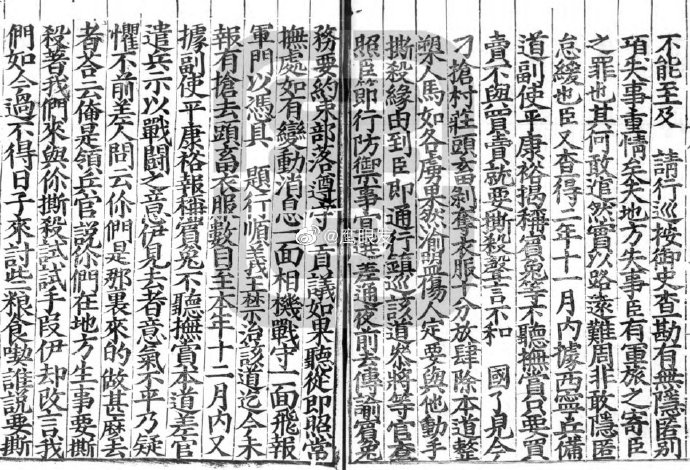 不能至及 請行巡按御史查勘有無隱匿別
項失事重情矣夫地方失事臣有重旅之寄臣
之罪也其何敢逭然實以路遠難周非敢隱匿
怠緩也臣又查得二年十一月內據西寧兵備
道副使平康裕揭稱賓兔等不聽撫賞只要買
賣不與買賣就要撕殺聲言不和 國了見今
刁搶村莊頭畜剝奪衣服十分放肆除本道整
槊人馬如各虜果然渝盟傷人定要與他動手
撕殺緣由到臣即通行鎮巡該道叅將等官查
照臣即行防禦事宜差通夜前去傳諭賓兔
務要約束部落遵守 議如果聽從即照常
撫處如有變動消息一面相機戰守一面飛報
軍門以憑具 題行順義王禁治該道迄今未
報有搶去頭畜衣服數目至本年十二月內又
據副使平康裕報稱賓兔不聽撫賞本道差官
遣兵示以戰鬪之意伊見去者意氣不平乃疑
懼不前差人問云你們是那裏來的做甚麽去
者荅云俺是領兵官說你們在地方生事要撕
殺著我們來與你撕殺試試手叚伊却改言我
們如今過不得日子來討些粮食喫誰說要撕